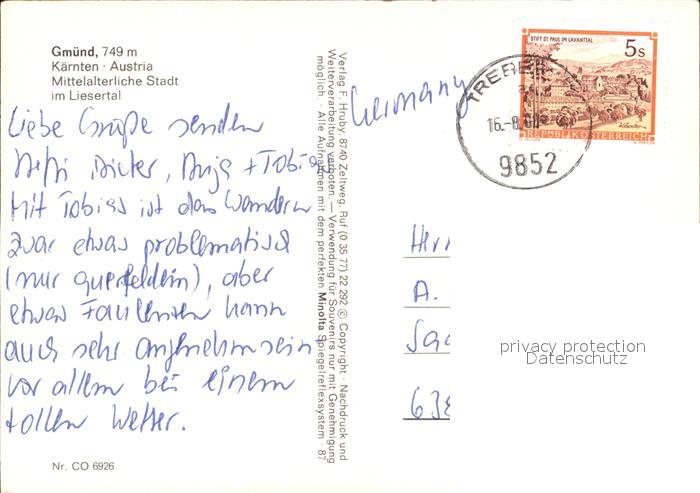 Gmünd, 749 m
Kärnten · Austria
Mittelalterliche Stadt
im Liesertal
Liebe Grüße senden
Dieter, Anja + Tobias
Mit Tobias ist das Wandern
zwar etwas problematisch
(nur querfeldein), aber
etwas Faulenzen kann
auch sehr angenehm sein
vor allem bei einem
tollen Wetter.
Nr. CO 6926
Verlag F. Hruby, 8740 Zeltweg, Ruf (0 35 77) 22 292 © Copyright · Nachdruck und
Weiterverarbeitung verboten. — Verwendung für Souvenirs nur mit Genehmigung
möglich. · Alle Aufnahmen mit dem perfekten Minolta Spiegelreflexsystem · 87
Germany
STIFT ST. PAUL IM LAVANTTAL
5s
REPUBLIK ÖSTERREICH
16.-8.
9852
Herr
A.
63
privacy protection
Datenschutz